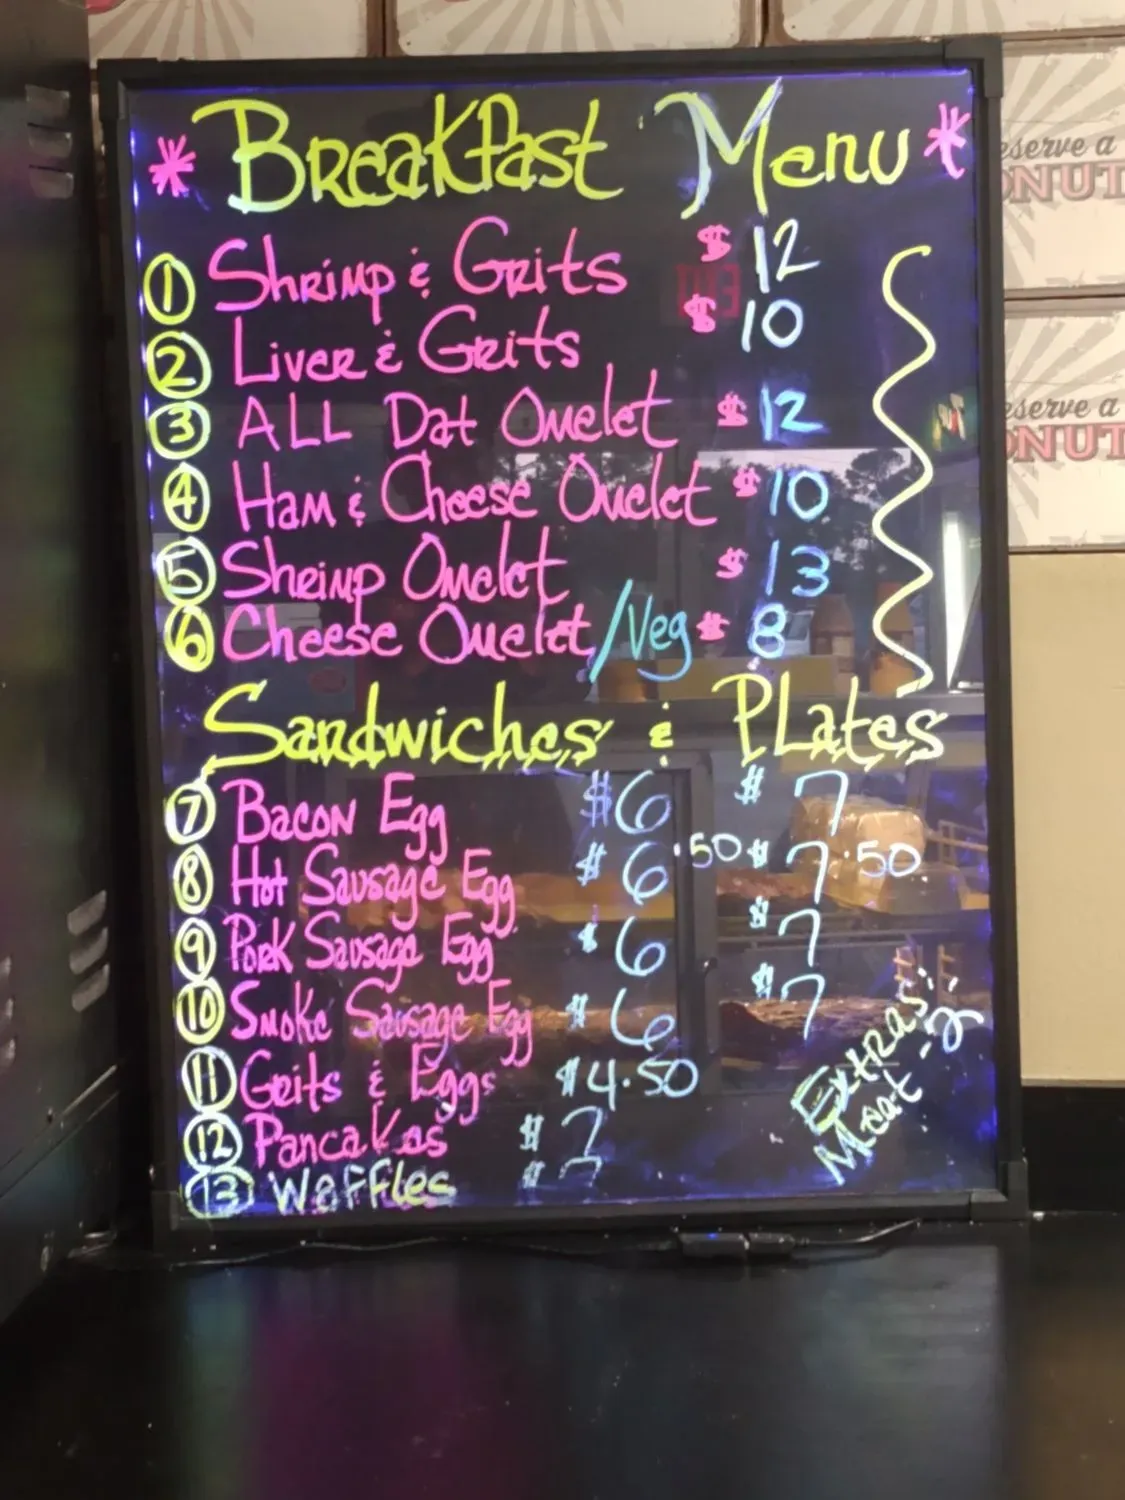 * Breakfast Menu *
1 Shrimp & Grits $12
2 Liver & Grits $10
3 ALL Dat Omelet $12
4 Ham & Cheese Omelet $10
5 Shrimp Omelet $13
6 Cheese Omelet/Veg $8
Sandwiches & Plates
7 Bacon Egg $6 $7
8 Hot Sausage Egg $6.50 $7.50
9 Pork Sausage Egg $6 $7
10 Smoke Sausage Egg $6 $7
11 Grits & Eggs $4.50
12 Pancakes $7
13 Waffles $7
Extras:
Meat -2-
eserve a
ONUT
eserve a
ONUT